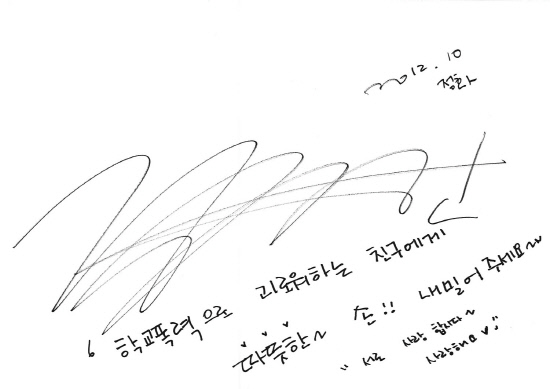 2012. 10
정화
학교폭력으로 괴로워하는 친구에게
따뜻한~ 손!! 내밀어 주세요~
"서로 사랑 합시다~
사랑해요♡"